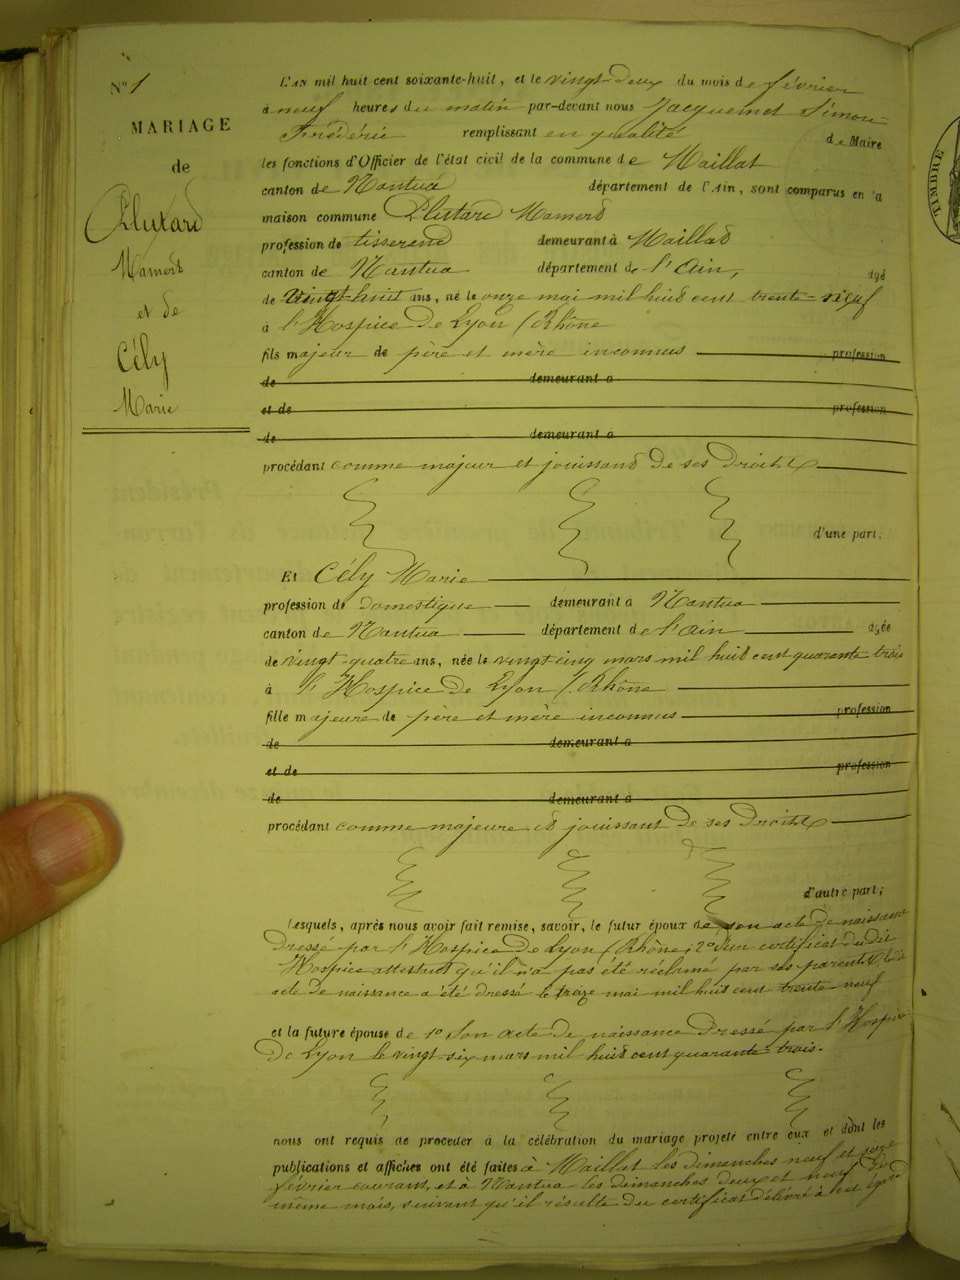 N° 1
MARIAGE
de
Plutard
Mamert
et de
Cély
Marie
L'AN mil huit cent soixante-huit, et le vingt-deux du mois de février
à neuf heures du matin par-devant nous Jacquemet Simon
Frédéric remplissant en qualité de Maire
les fonctions d'Officier de l'état civil de la commune de Maillat
canton de Nantua département de l'Ain, sont comparus en la
maison commune Plutard Mamerd
profession de tisserand demeurant à Maillad
canton de Nantua département de l'Ain, âgé
de vingt-huit ans, né le onze mai mil huid cent trente-neuf
à l'Hospice de Lyon (Rhône
fils majeur de père et mère inconnus profession
de demeurant à
et de profession
de demeurant à
procédant comme majeur et jouissand de ses droits
d'une part.
Et Cély Marie
profession de domestique demeurant à Nantua
canton de Nantua département de l'Ain âgée
de vingt-quatre ans, née le vingt cinq mars mil huid cent quarante trois
à l'Hospice de Lyon (Rhône
fille majeure de père et mère inconnus profession
de demeurant à
et de profession
de demeurant à
procédant comme majeure et jouissant de ses droits
d'autre part;
lesquels, après nous avoir fait remise, savoir, le futur époux de son acte de naissance
dressé par l'Hospice de Lyon (Rhône, 2° d'un certificat du dit
Hospice attestant qu'il n'a pas été réclamé par ses parents
acte de naissance a été dressé le treize mai mil huid cent trente neuf
et la future épouse de 1° son acte de naissance dressé par l'Hospice
de Lyon le vingt six mars mil huid cent quarante-trois.
nous ont requis de procéder à la célébration du mariage projeté entre eux et dont les
publications et affiches ont été faites à Maillat les dimanches neuf et seize
février courant, et à Nantua les dimanches deux et neuf du
même mois, suivant qu'il résulte du certificat délivré à cet égard
TIMBRE